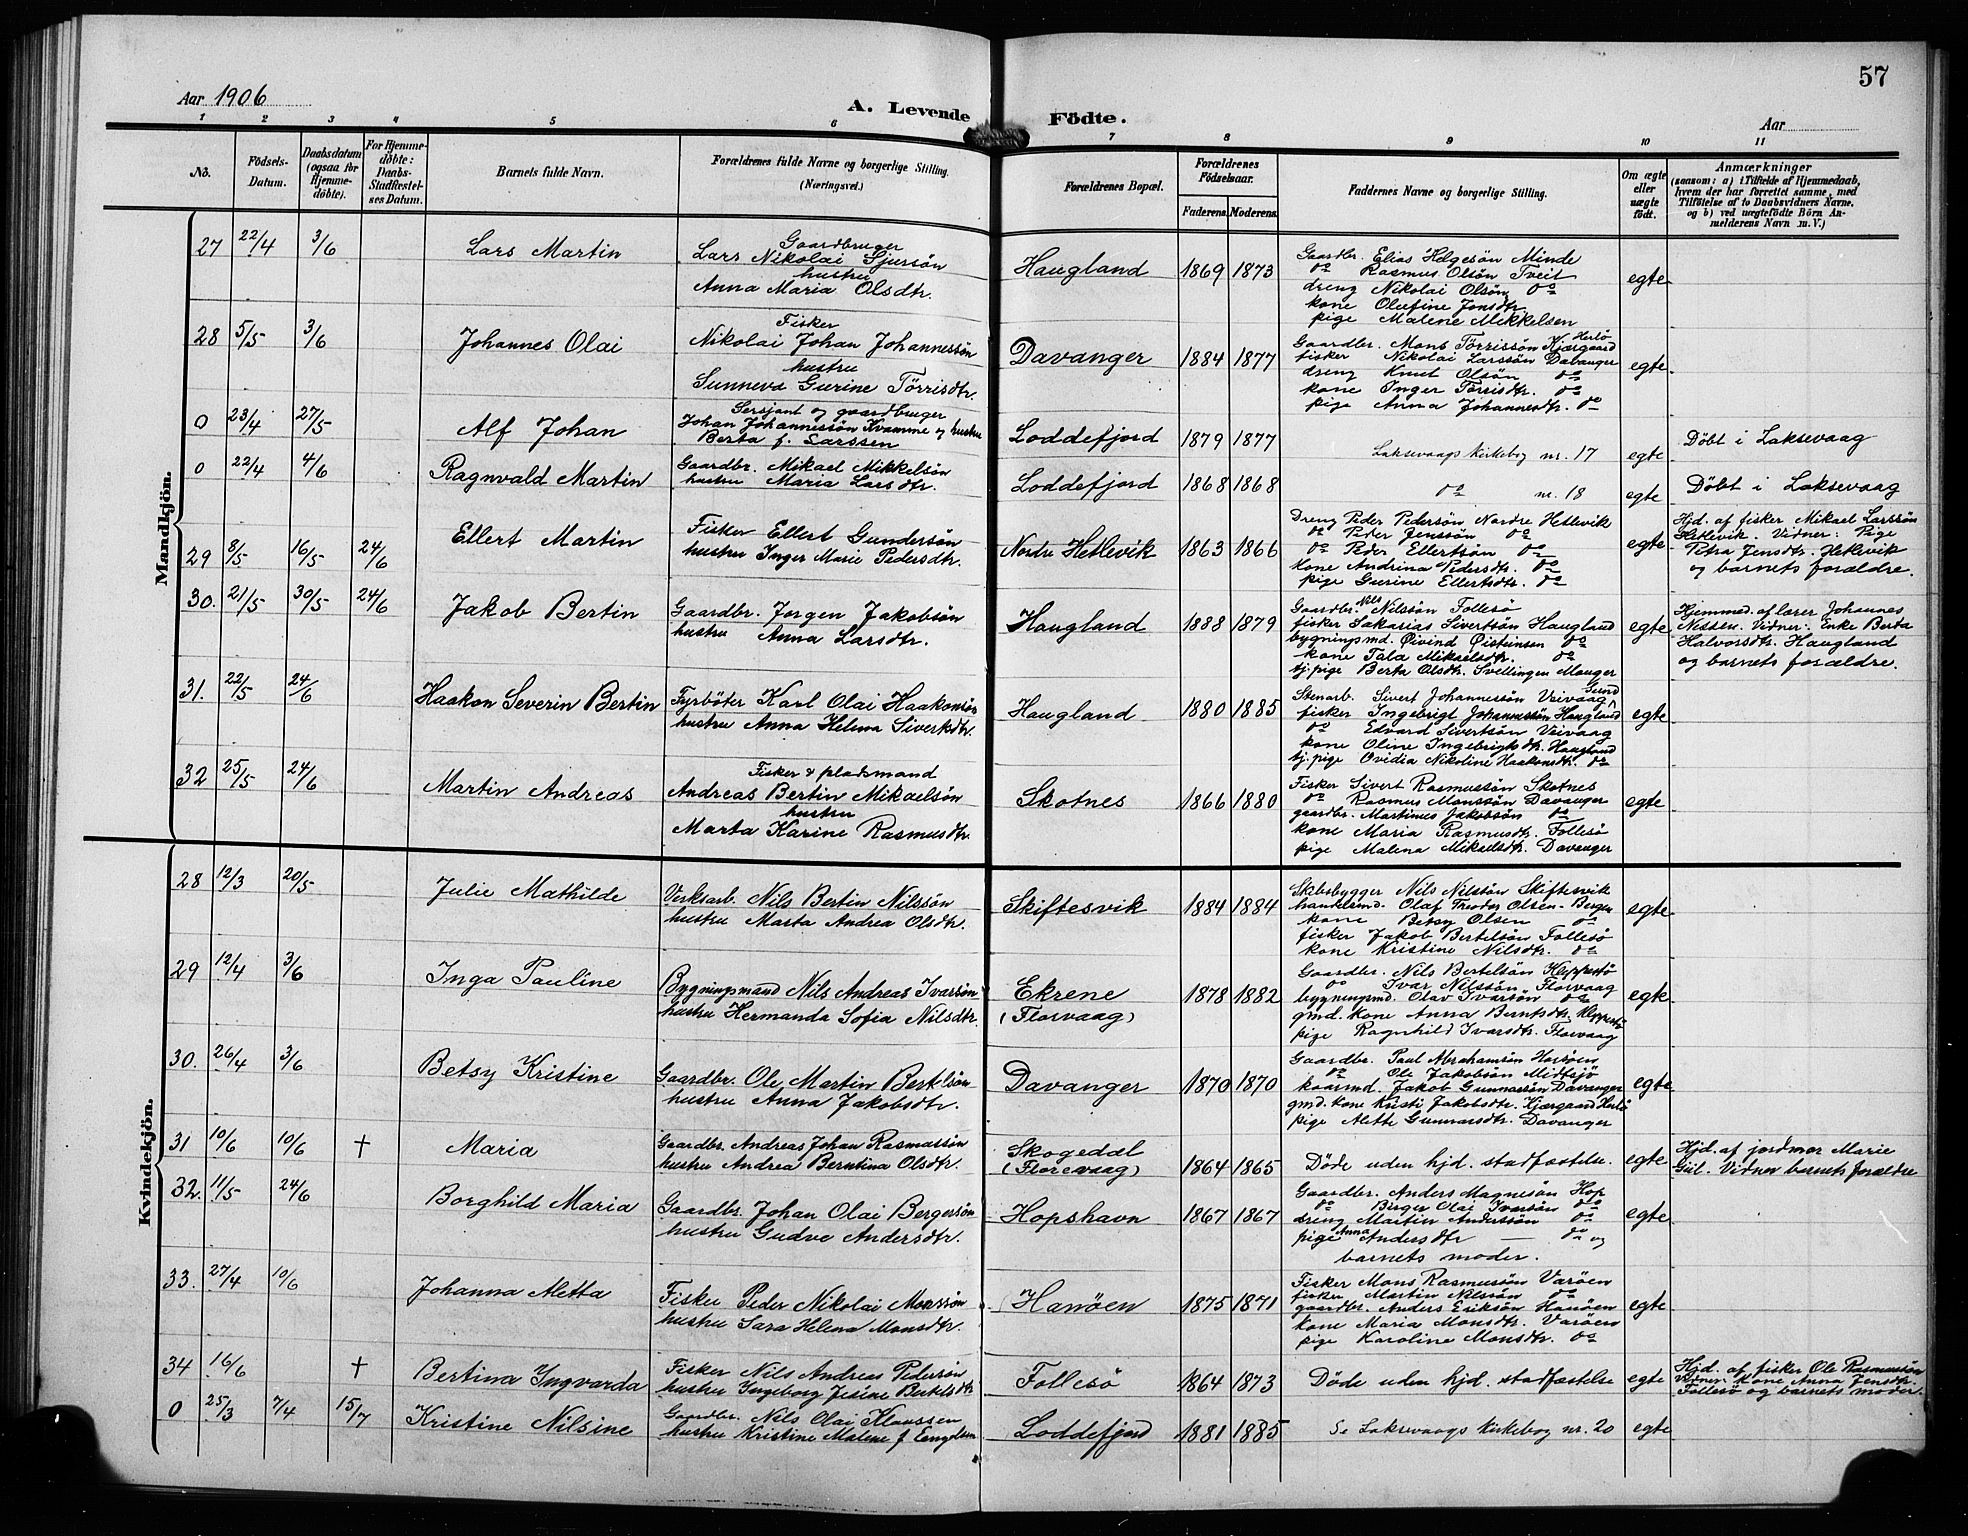 57
Aar 1906
A. Levende Födte.
Aar
1 2 3 4 5 6 7 8 9 10 11
No.
Födsels-Datum.
Daabsdatum (ogsaa for Hjemmedöbte).
For Hjemmedöbte: Daabs-Stadfæstelses Datum.
Barnets fulde Navn.
Forældrenes fulde Navne og borgerlige Stilling. (Næringsvei.)
Forældrenes Bopæl.
Forældrenes Födselsaar.
Faderens. Moderens.
Faddernes Navne og borgerlige Stilling.
Om ægte eller uægte födt.
Anmærkninger
(saasom: a) i Tilfælde af Hjemmedaab, hvem der har forrettet samme, med Tilföielse af to Daabsvidners Navne, og b) ved uægtefödte Börn Anmelderens Navn m. V.)
Mandkjön.
27 22/4 3/6 Lars Martin
Gaardbruger
Lars Nikolai Sjursön
hustru
Anna Maria Olsdtr.
Haugland 1869 1873
Gaardbr. Elias Helgesön Minde
do Rasmus Olsön Tveit
dreng Nikolai Olsön do
kone Olefine Jonsdtr.
pige Malene Mikkelsen
egte
28 5/5 3/6 Johannes Olai
Fisker
Nikolai Johan Johannessön
hustru
Sunneva Gurine Törrisdtr.
Davanger 1884 1877
Gaardbr. Mons Törrissön Kjærgaard Herlö
fisker Nikolai Larssön Davanger
dreng Knut Olsön do
kone Inger Törrisdtr. do
pige Anna Johannesdtr. do
egte
0 23/4 27/5 Alf Johan
Sersjant og gaardbruger
Johan Johannessön Kvamme og hustru
Berta f. Larssen
Loddefjord 1879 1877
Laksevaags Kirkebog nr. 17 egte
Döbt i Laksevaag
0 22/4 4/6 Ragnvald Martin
Gaardbr. Mikael Mikkelsön
hustru Maria Larsdtr.
Loddefjord 1868 1868
do nr. 18 egte
Döbt i Laksevaag
29 8/5 16/5 24/6 Ellert Martin
Fisker Ellert Gundersön
hustru Inger Marie Pedersdtr.
Nordre Hetlevik 1863 1866
Dreng Peder Pedersön Nordre Hetlevik
do Peder Jenssön do
do Peder Ellertsön do
kone Andrina Pedersdtr. do
pige Gurine Ellertsdtr. do
egte
Hjd. af fisker Mikael Larssön
Hetlevik. Vidner: Pige
Petra Jensdtr. Hetlevik
og barnets forældre.
30. 21/5 30/5 24/6 Jakob Bertin
Gaardbr. Jörgen Jakobsön
hustru Anna Larsdtr.
Haugland 1888 1879
Gaardbr. Nils Nilssön Follesö
fisker Sakarias Sivertsön Haugland
bygningsmd. Øivind Øisteinsen do
kone Tala Mikaelsdtr. do
tj. pige Berta Olsdtr. Svellingen Manger
egte
Hjemmed. af lærer Johannes
Nessen. Vidner: Enke Berta
Halvorsdtr. Haugland
og barnets forældre.
31. 22/5 24/6 Haakon Severin Bertin
Fyrböter Karl Olai Haakonsön
hustru Anna Helena Sivertsdtr.
Haugland 1880 1885
Stenarb. Sivert Johannessön Veivaag, Sund
fisker Ingebrigt Johannessön Haugland
do Edvard Sivertsön Veivaag
kone Oline Ingebrigtsdtr. Haugland
tj. pige Ovidia Nikoline Haakonsdtr. do
egte
32 25/5 24/6 Martin Andreas
Fisker & pladsmand
Andreas Bertin Mikaelsön
hustru
Marta Karine Rasmusdtr.
Skotnes 1866 1880
Fisker Sivert Rasmussön Skotnes
do Rasmus Monssön Davanger
gaardbr. Martinus Jakobsön do
kone Maria Rasmusdtr. Follesö
pige Malena Mikaelsdtr. Davanger
egte
Kvindekjön.
28 12/3 20/5 Julie Mathilde
Verksarb. Nils Bertin Nilssön
hustru Marta Andrea Olsdtr.
Skiftesvik 1884 1884
Skibsbygger Nils Nilssön Skiftesvik
handelsmd. Olaf Theodor Olsen - Bergen
kone Betsy Olsen do
fisker Jakob Bertelsön Follesö
kone Kristine Nilsdtr. do
egte
29 12/4 3/6 Inga Pauline
Bygningsmand Nils Andreas Ivarsön
hustru Hermanda Sofia Nilsdtr.
Ekrene
(Florvaag)
1878 1882
Gaardbr. Nils Bertelsön Kleppestö
do Ivar Nilssön Florvaag
bygningsmd. Olav Ivarsön do
gmd. kone Anna Berntsdtr. Kleppestö
pige Ragnhild Ivarsdtr. Florvaag
egte
30. 26/4 3/6 Betsy Kristine
Gaardbr. Ole Martin Bertelsön
hustru Anna Jakobsdtr.
Davanger 1870 1870
Gaardbr. Paul Abrahamsön
do Ole Jakobsön Midtsjö
kaarmd. Jakob Gunnarsön Davanger
gmd. kone Kristi Jakobsdtr. Kjærgaard Herlö
pige Alette Gunnarsdtr. Davanger
egte
31 10/6 10/6 † Maria
Gaardbr. Andreas Johan Rasmussön
hustru Andrea Berntina Olsdtr.
Skogedal
(Florevaag)
1864 1865
Döde uden hjd. stadfæstelse. egte
Hjd. af jordmor Marie
Giil. Vidner barnets forældre
32. 11/5 24/6 Borghild Maria
Gaardbr. Johan Olai Bergersön
hustru Gudve Andersdtr.
Hopshavn 1867 1867
Gaardbr. Anders Magnesön Hop
do Birger Olai Iversön do
dreng Martin Anderssön do
pige Anna Andersdtr — do og
barnets moder.
egte
33. 27/4 10/6 Johanna Aletta
Fisker Peder Nikolai Monssön
hustru Sara Helena Monsdtr.
Hanöen 1875 1871
Fisker Mons Rasmusön Varöen
fisker Martin Nilssön do
gaardbr. Anders Eriksön Hanöen
kone Maria Monsdtr. Varöen
pige Karoline Monsdtr. do
egte
34 16/6 † Bertina Ingvarda
Fisker Nils Andreas Pedersön
hustru Ingeborg Jesine Bertelsdtr
Follesö 1864 1873
Döde uden hjd. stadfæstelse egte
Hjd. af fisker Ole Rasmussön
Vidner: Kone Anna Jensdtr.
Follesö og barnets moder.
0 25/3 7/4 15/7 Kristine Nilsine
Gaardbr. Nils Olai Klaussen
hustru Kristine Malene f.
Loddefjord 1881 1885
Se Laksevaags Kirkebog nr. 20 egte